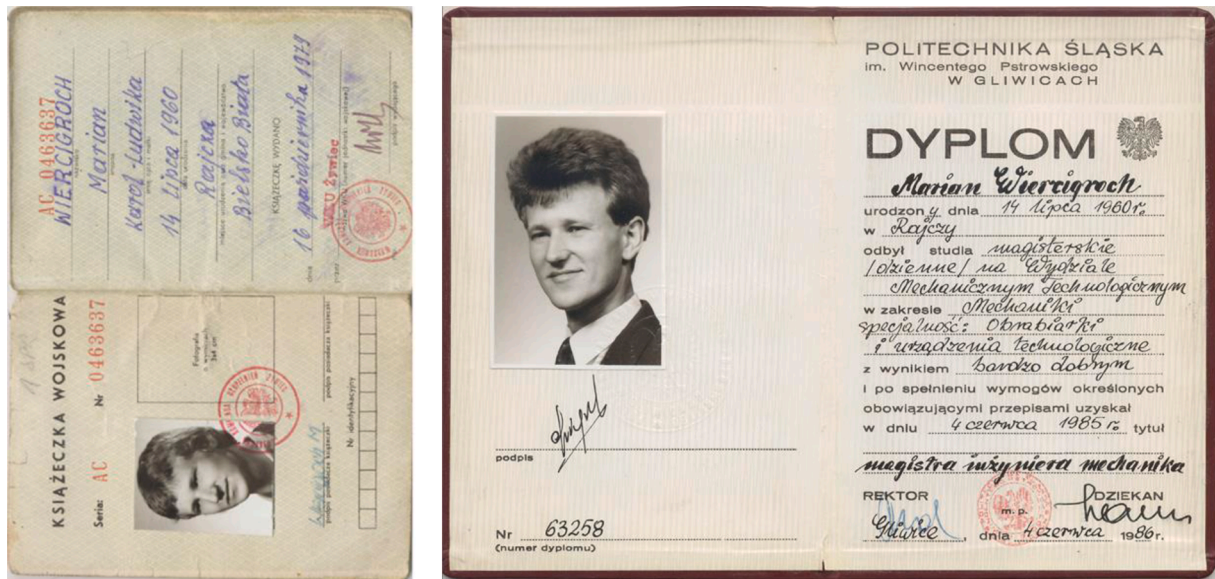 AC 0463637
WIERCIGROCH
nazwisko
Marian
Karol-Ludwika
14 lipca 1960
Rajcza
Bielsko Biała
KSIĄŻECZKĘ WYDANO
dnia 16 października 1979
WKU Żywiec
KSIĄŻECZKA WOJSKOWA
Seria: AC Nr 0463637
Fotografia
podpis posiadacza książeczki
Nr identyfikacyjny
POLITECHNIKA ŚLĄSKA
im. Wincentego Pstrowskiego
W GLIWICACH
DYPLOM
Marian Wiercigroch
urodzony dnia 14 lipca 1960r.
w Rajczy
odbył studia magisterskie
/dzienne/ na Wydziale
Mechanicznym Technologicznym
w zakresie Mechaniki
specjalność: Obrabiarki
i urządzenia technologiczne
z wynikiem bardzo dobrym
i po spełnieniu wymogów określonych
obowiązującymi przepisami uzyskał
w dniu 4 czerwca 1985 r. tytuł
magistra inżyniera mechanika
REKTOR DZIEKAN
m. p.
Gliwice, dnia 4 czerwca 1986r.
podpis
Nr 63258
(numer dyplomu)